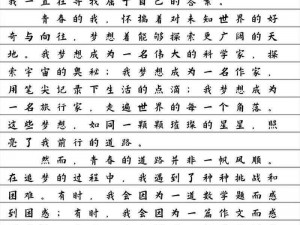 我一直在寻找属于自己的答案。
青春的我，怀揣着对未知世界的好
奇与向往，梦想着能够探索更广阔的天
地。我梦想成为一名伟大的科学家，探
索宇宙的奥秘；我梦想成为一名作家，
用笔尖记录下生活的点滴；我梦想成为
一名旅行家，走遍世界的每一个角落。
这些梦想，如同一颗颗璀璨的星星，照
亮了我前行的道路。
然而，青春的道路并非一帆风顺。
在追梦的过程中，我遇到了种种挑战和
困难。有时，我会因为一道数学题而感
到困惑；有时，我会因为一篇作文而感